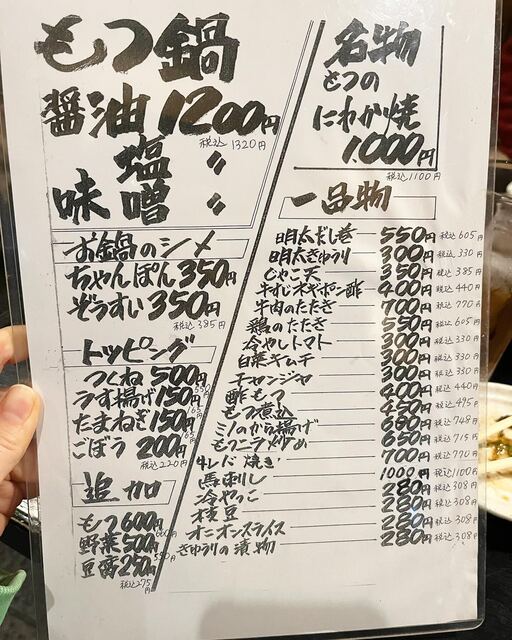 もつ鍋
醤油 1200円
税込1320円
塩 〃
味噌 〃
お鍋のシメ
ちゃんぽん 350円
ぞうすい 350円
税込385円
トッピング
つくね 500円
うす揚げ 150円
たまねぎ 150円
ごぼう 200円
税込220円
追加
もつ 600円
野菜 500円
豆腐 250円
税込275円
名物
もつの
にわか焼
1,000円
税込1100円
一品物
明太だし巻 550円 税込605円
明太きゅうり 300円 税込330円
じゃこ天 350円 税込385円
牛すじネギポン酢 400円 税込440円
牛肉のたたき 700円 税込770円
鶏のたたき 550円 税込605円
冷やしトマト 300円 税込330円
白菜キムチ 300円 税込330円
チャンジャ 300円 税込330円
酢もつ 400円 税込440円
もつ煮込 450円 税込495円
ミノのから揚げ 680円 税込748円
もつニラ炒め 650円 税込715円
焼き 700円 税込770円
馬刺し 1000円 税込1100円
冷やっこ 280円 税込308円
枝豆 280円 税込308円
オニオンスライス 280円 税込308円
きゅうりの漬物 280円 税込308円